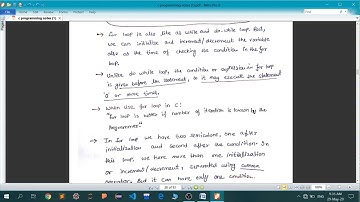 → for loop is also like as while and do-while loop. But,
we can initialize and increment/decrement the variable
also as the time of checking the condition in the for
loop.
→ Unlike do while loop, the condition or expression in for loop
is given before the statement, so it may execute the statement
'0' or more times.
→ When use for loop in C:
"For loop is useful if number of iteration is known by the
Programmer"
→ In for loop we have two semicolons, one after
initialization and second after the condition. In
this loop, we have more than one initialization
or increment/decrement, separated using comma
operator. But it can have only one condition.